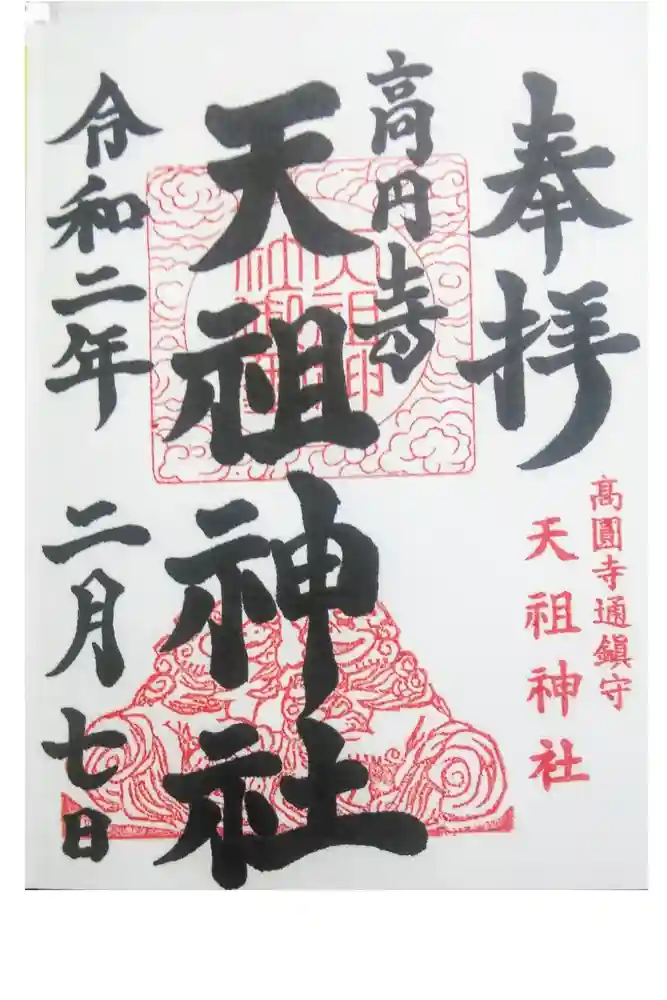 奉拝
高圓寺通鎮守
天祖神社
高円寺
天祖神社
令和二年
二月七日